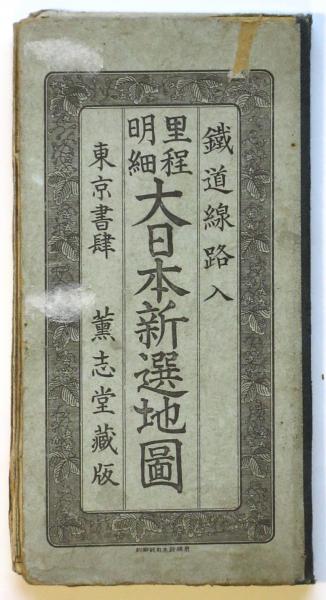 鐵道線路入
里程
明細
大日本新選地圖
東京書肆 薫志堂藏版